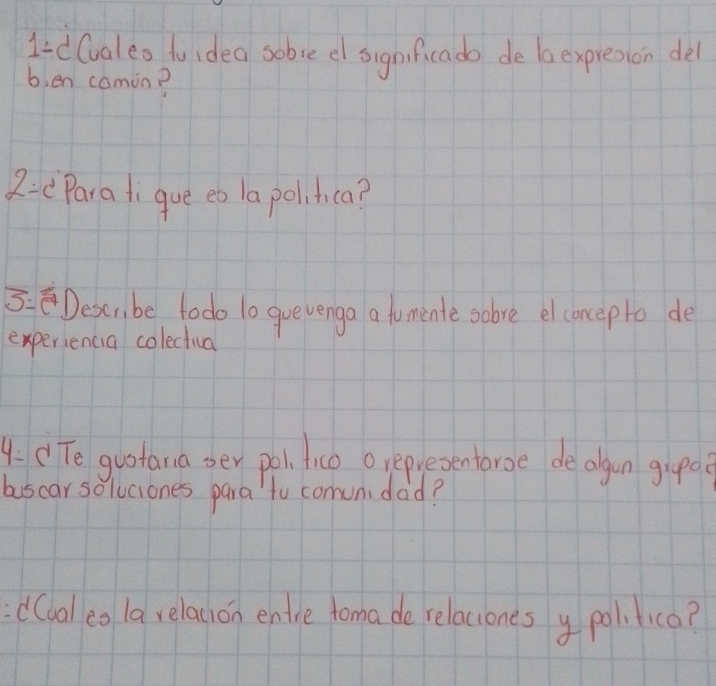 1-¿Cuales tu idea sobre el significado de la expresión del
bien común?
2-¿Para ti que es la politica?
3- Describe todo lo que venga a tu mente sobre el concepto de
experiencia colectiva
4-¿Te gustaria ser politico o representarse de algun grupo
buscar soluciones para tu comunidad?
-¿Cual es la relación entre toma de relaciones y politica?